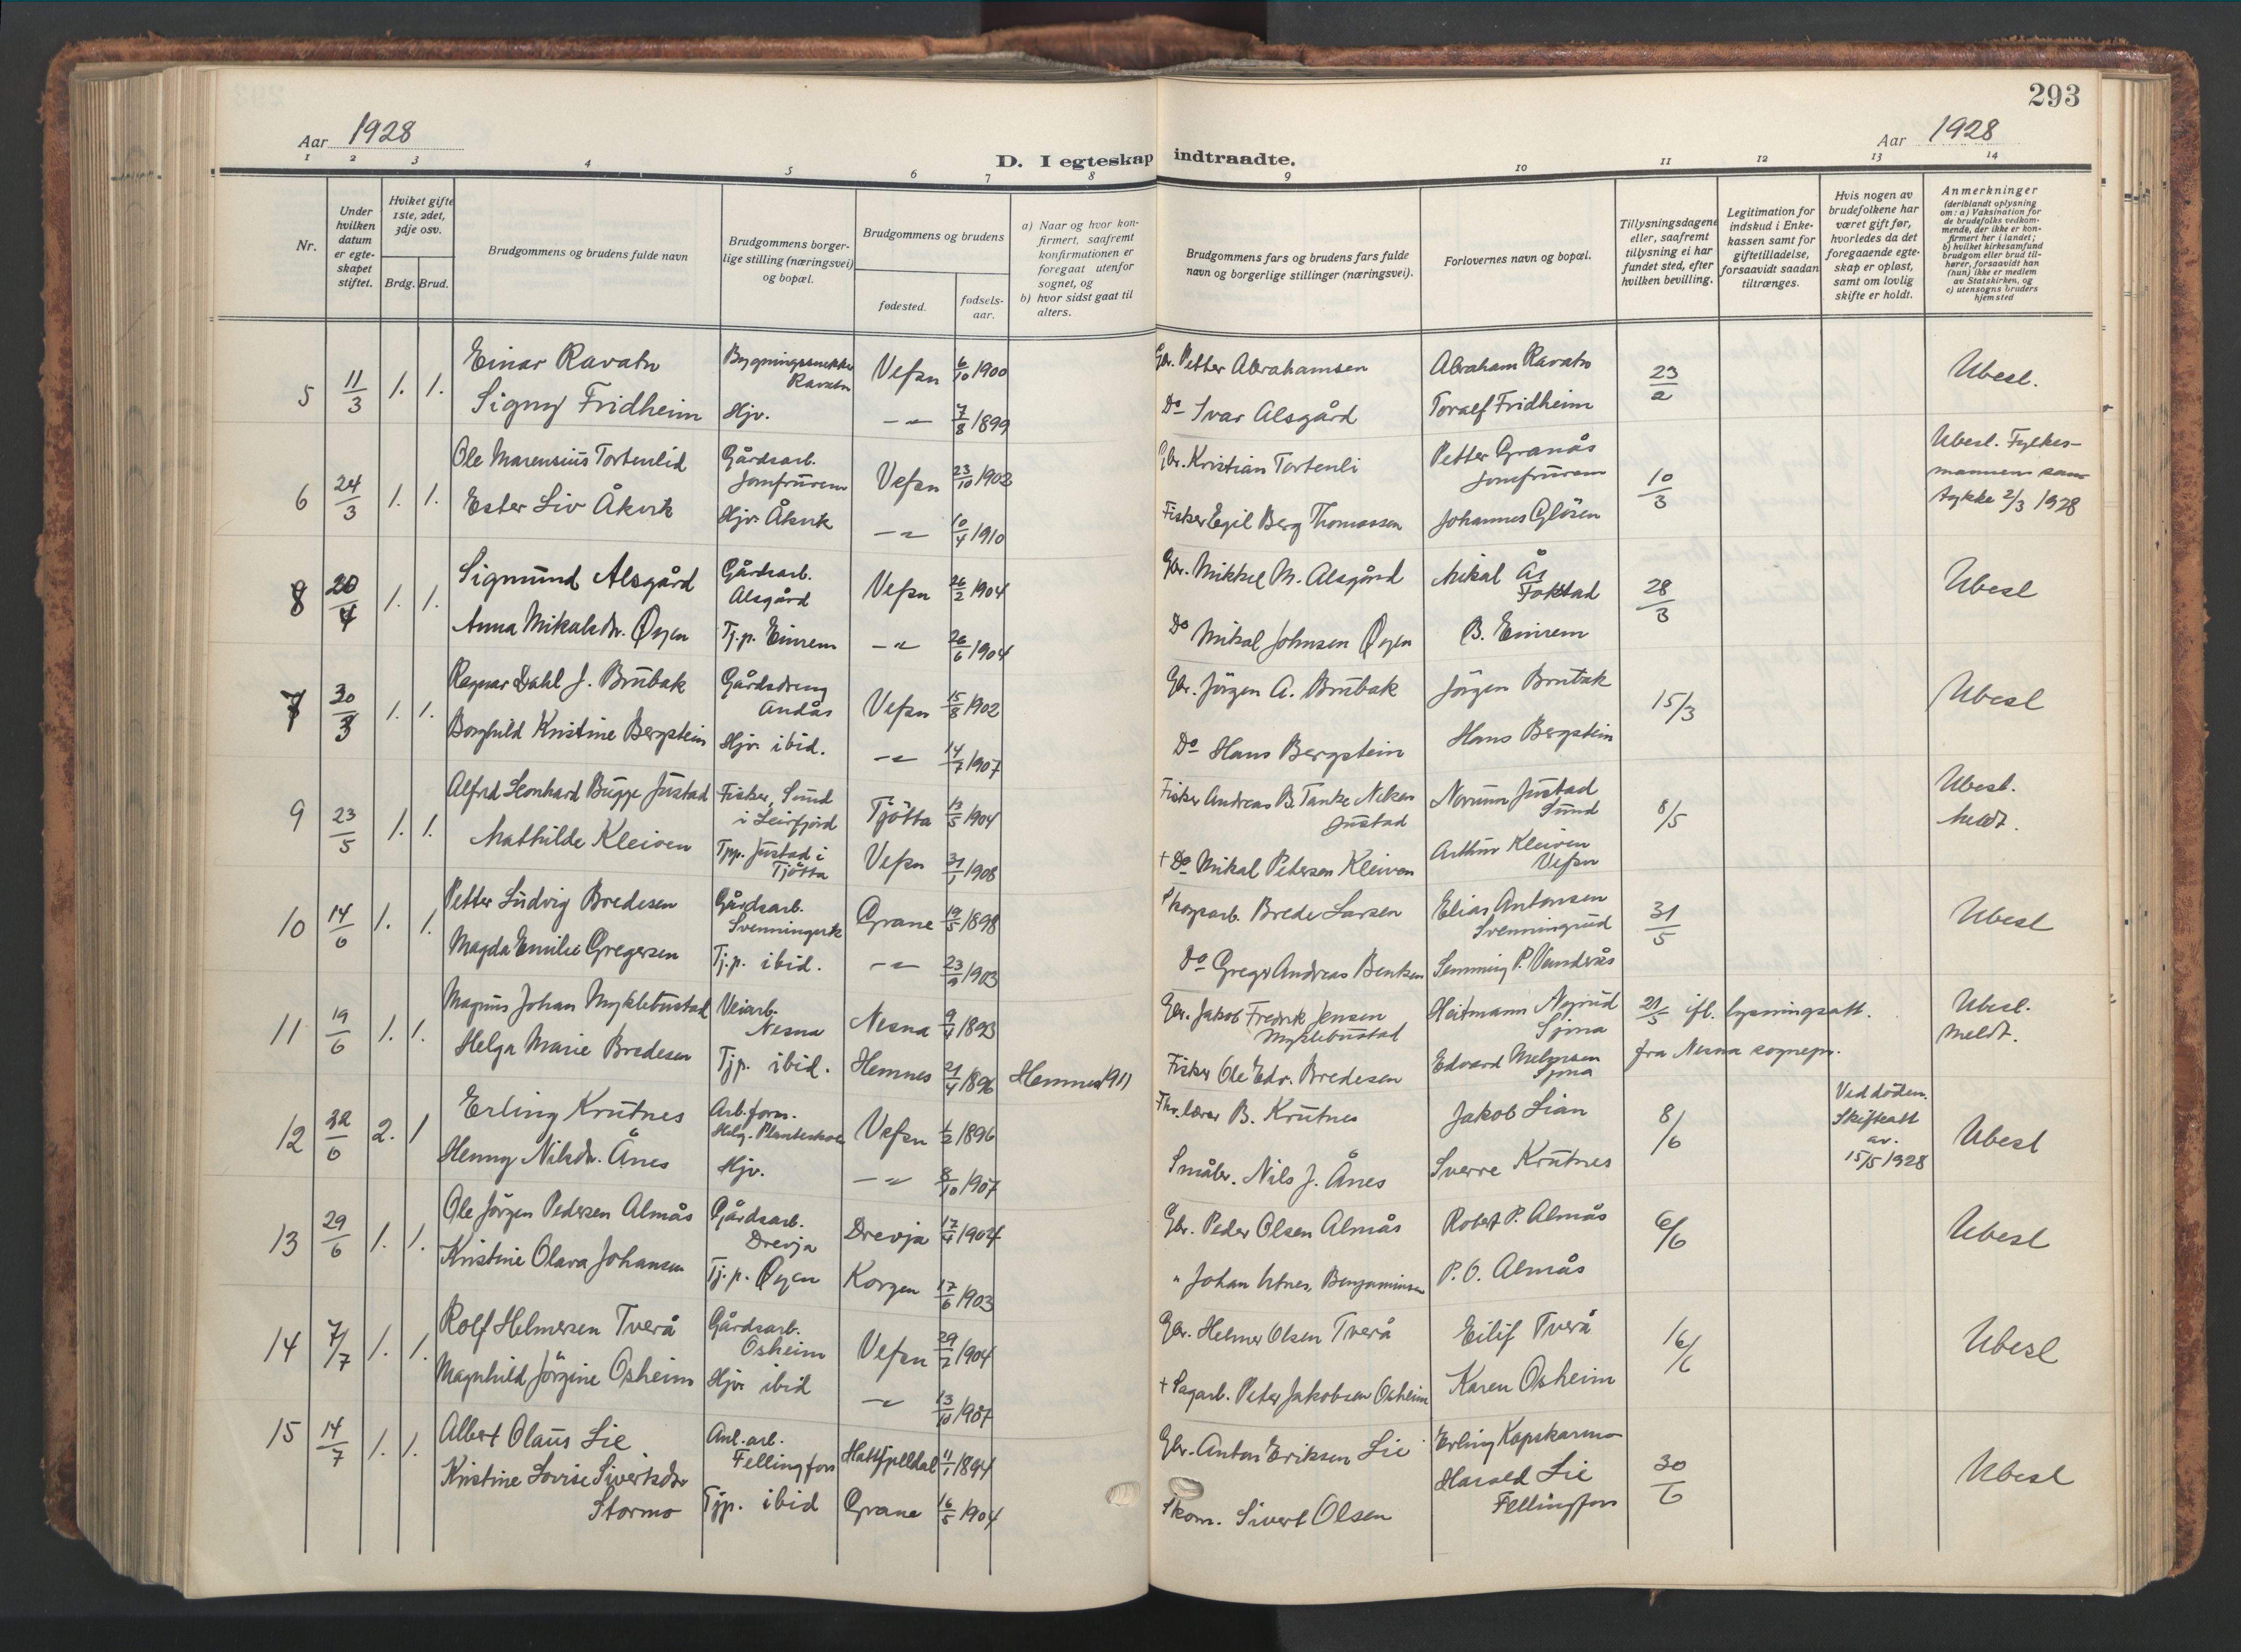 293
Aar 1928
Aar 1928
D. I egteskap indtraadte.
1 2 3 4 5 6 7 8 9 10 11 12 13 14
Nr.
Under hvilken datum er egteskapet stiftet.
Hviket gifte 1ste, 2det, 3dje osv.
Brdg. Brud.
Brudgommens og brudens fulde navn
Brudgommens borgerlige stilling (næringsvei) og bopæl.
Brudgommens og brudens
fødested.
fødselsaar.
a) Naar og hvor konfirmert, saafremt konfirmationen er foregaat utenfor sognet, og
b) hvor sidst gaat til alters.
Brudgommens fars og brudens fars fulde navn og borgerlige stillinger (næringsvei).
Forlovernes navn og bopæl.
Tillysningsdagene eller, saafremt tillysning ei har fundet sted, efter hvilken bevilling.
Legitimation for indskud i Enkekassen samt for giftetilladelse, forsaavidt saadan tiltrænges.
Hvis nogen av brudefolkene har været gift før, hvorledes da det foregaaende egteskap er opløst, samt om lovlig skifte er holdt.
Anmerkninger (deriblandt oplysning om: a) Vaksination for de brudefolks vedkommende, der ikke er konfirmert her i landet; b) hvilket kirkesamfund brudgom eller brud tilhører, forsaavidt han (hun) ikke er medlem av Statskirken, og c) utensogns bruders hjemsted
5 11/3 1. 1. Einar Ravatn Bygningssnekker Ravatn Vefsn 6/10 1900 Gbr. Petter Abrahamsen Abraham Ravatn 23/2 Ubesl.
Signy Fridheim Hjv. -"- 7/8 1899 Do Ivar Alsgård Toralf Fridheim
6 24/3 1. 1. Ole Marensius Tortenlid Gårdsarb. Jomfrurem Vefsn 23/10 1902 Gbr. Kristian Tortenli Petter Granås Jomfrurem 10/3 Ubesl. Fylkesmannens samtykke 2/3 1928
Ester Liv Åkvik Hjv. Åkvik -"- 10/4 1910 Fisker Egil Berg Thomassen Johannes Glösen
8 20/4 1. 1. Sigmund Alsgård Gårdsarb. Alsgård Vefsn 26/2 1904 Gbr. Mikkel M. Alsgård Mikal Ås Foktad 28/3 Ubesl
Anna Mikalsdr. Øyen Tj.p. Einrem -"- 26/6 1904 Do Mikal Johnsen Øyen B. Einrem
7 30/3 1. 1. Ragnar Dahl J. Brubak Gårdsdreng Andås Vefsn 15/8 1902 Gbr. Jörgen A. Brubak Jörgen Brubak 15/3 Ubesl
Borghild Kristine Bergstein Hjv. ibid. -"- 14/7 1907 Do Hans Bergstein Hans Bergstein
9 23/5 1. 1. Alfred Leonhard Bugge Justad Fisker, Sund i Leirfjord Tjötta 13/5 1904 Fisker Andreas B. Tanke Nilsen Justad Norum Justad Sund 8/5 Ubesl. Meldt.
Mathilde Kleiven Tjp. Justad i Tjötta Vefsn 31/1 1908 + Do Mikal Petersen Kleiven Arthur Kleiven Vefsn
10 14/6 1. 1. Petter Ludvig Bredesen Gårdsarb. Svenningvik Grane 19/5 1898 Skogsarb. Brede Larsen Elias Antonsen Svenningrud 31/5 Ubesl
Magda Emilie Gregersen Tj.p. ibid. -"- 23/9 1903 Do Greger Andreas Bentsen Semming P. Vandås
11 19/6 1. 1. Magnus Johan Myklebustad Veiarb. Nesna Nesna 9/4 1893 Gbr. Jakob Fredrik Jensen Myklebustad Heitmann Nyrud Sjona 21/5 ifl. lysningsatt. Ubesl. Meldt.
Helga Marie Bredesen Tjp. ibid. Hemnes 21/4 1896 Hemnes 1911 Fisker Ole Edv. Bredesen Edvard Sjona fra Nesna sognepr.
12 22/6 2. 1 Erling Krutnes Arb.form. Helg. Planteskole Vefsn 1/2 1896 Fhv. lærer B. Krutnes Jakob Lian 8/6 Ved döden. Skifteatt av. 15/5 1928 Ubesl
Henny Nilsdr. Ånes Hjv. -"- 8/10 1907 Småbr. Nils J. Ånes Sverre Krutnes
13 29/6 1. 1. Ole Jörgen Pedersen Almås Gårdsarb. Drevja Drevja 17/4 1904 Gbr. Peder Olsen Almås Robert P. Almås 6/6 Ubesl
Kristine Olava Johansen Tj.p. Øyen Korgen 17/6 1903 " Johan Utnes, Benjaminsen P. O. Almås
14 7/7 1. 1. Rolf Helmersen Tverå Gårdsarb. Osheim Vefsn 29/2 1904 Gbr. Helmer Olsen Tverå Eilif Tverå 16/6 Ubesl
Magnhild Jörgine Osheim Hjv. ibid -"- 13/10 1907 + Sagarb. Peter Jakobsen Osheim Karen Osheim
15 14/7 1. 1. Albert Olaus Lie Anl.arb. Fellingfors Hattfjelldal 11/1 1894 Gbr. Anton Eriksen Lie Erling Kapskarmo 30/6 Ubesl
Kristine Lovise Sivertsdr Stormo Tjp. ibid Grane 16/5 1904 Skom. Sivert Olsen Harald Lie Fellingfors